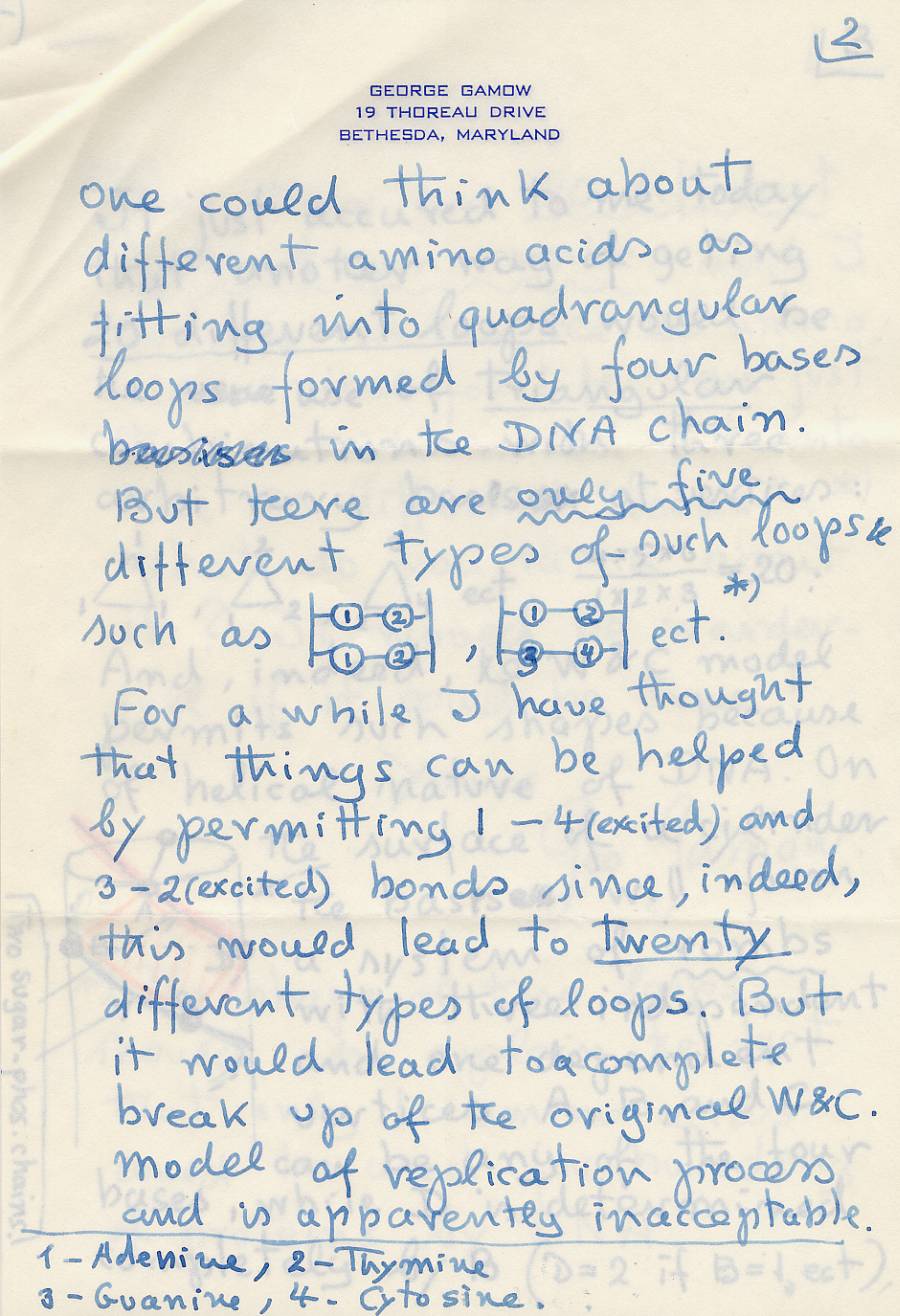 2
GEORGE GAMOW
19 THOREAU DRIVE
BETHESDA, MARYLAND
one could think about
different amino acids as
fitting into quadrangular
loops formed by four bases
in the DNA chain.
But there are only five
different types of such loops
such as 1 2 1 2 , 1 2 3 4 ect. *)
For a while I have thought
that things can be helped
by permitting 1 - 4 (excited) and
3 - 2 (excited) bonds since, indeed,
this would lead to twenty
different types of loops. But
it would lead to a complete
break up of the original W&C.
model of replication process
and is apparently inacceptable.
1 - Adenine, 2 - Thymine
3 - Guanine, 4 - Cytosine.